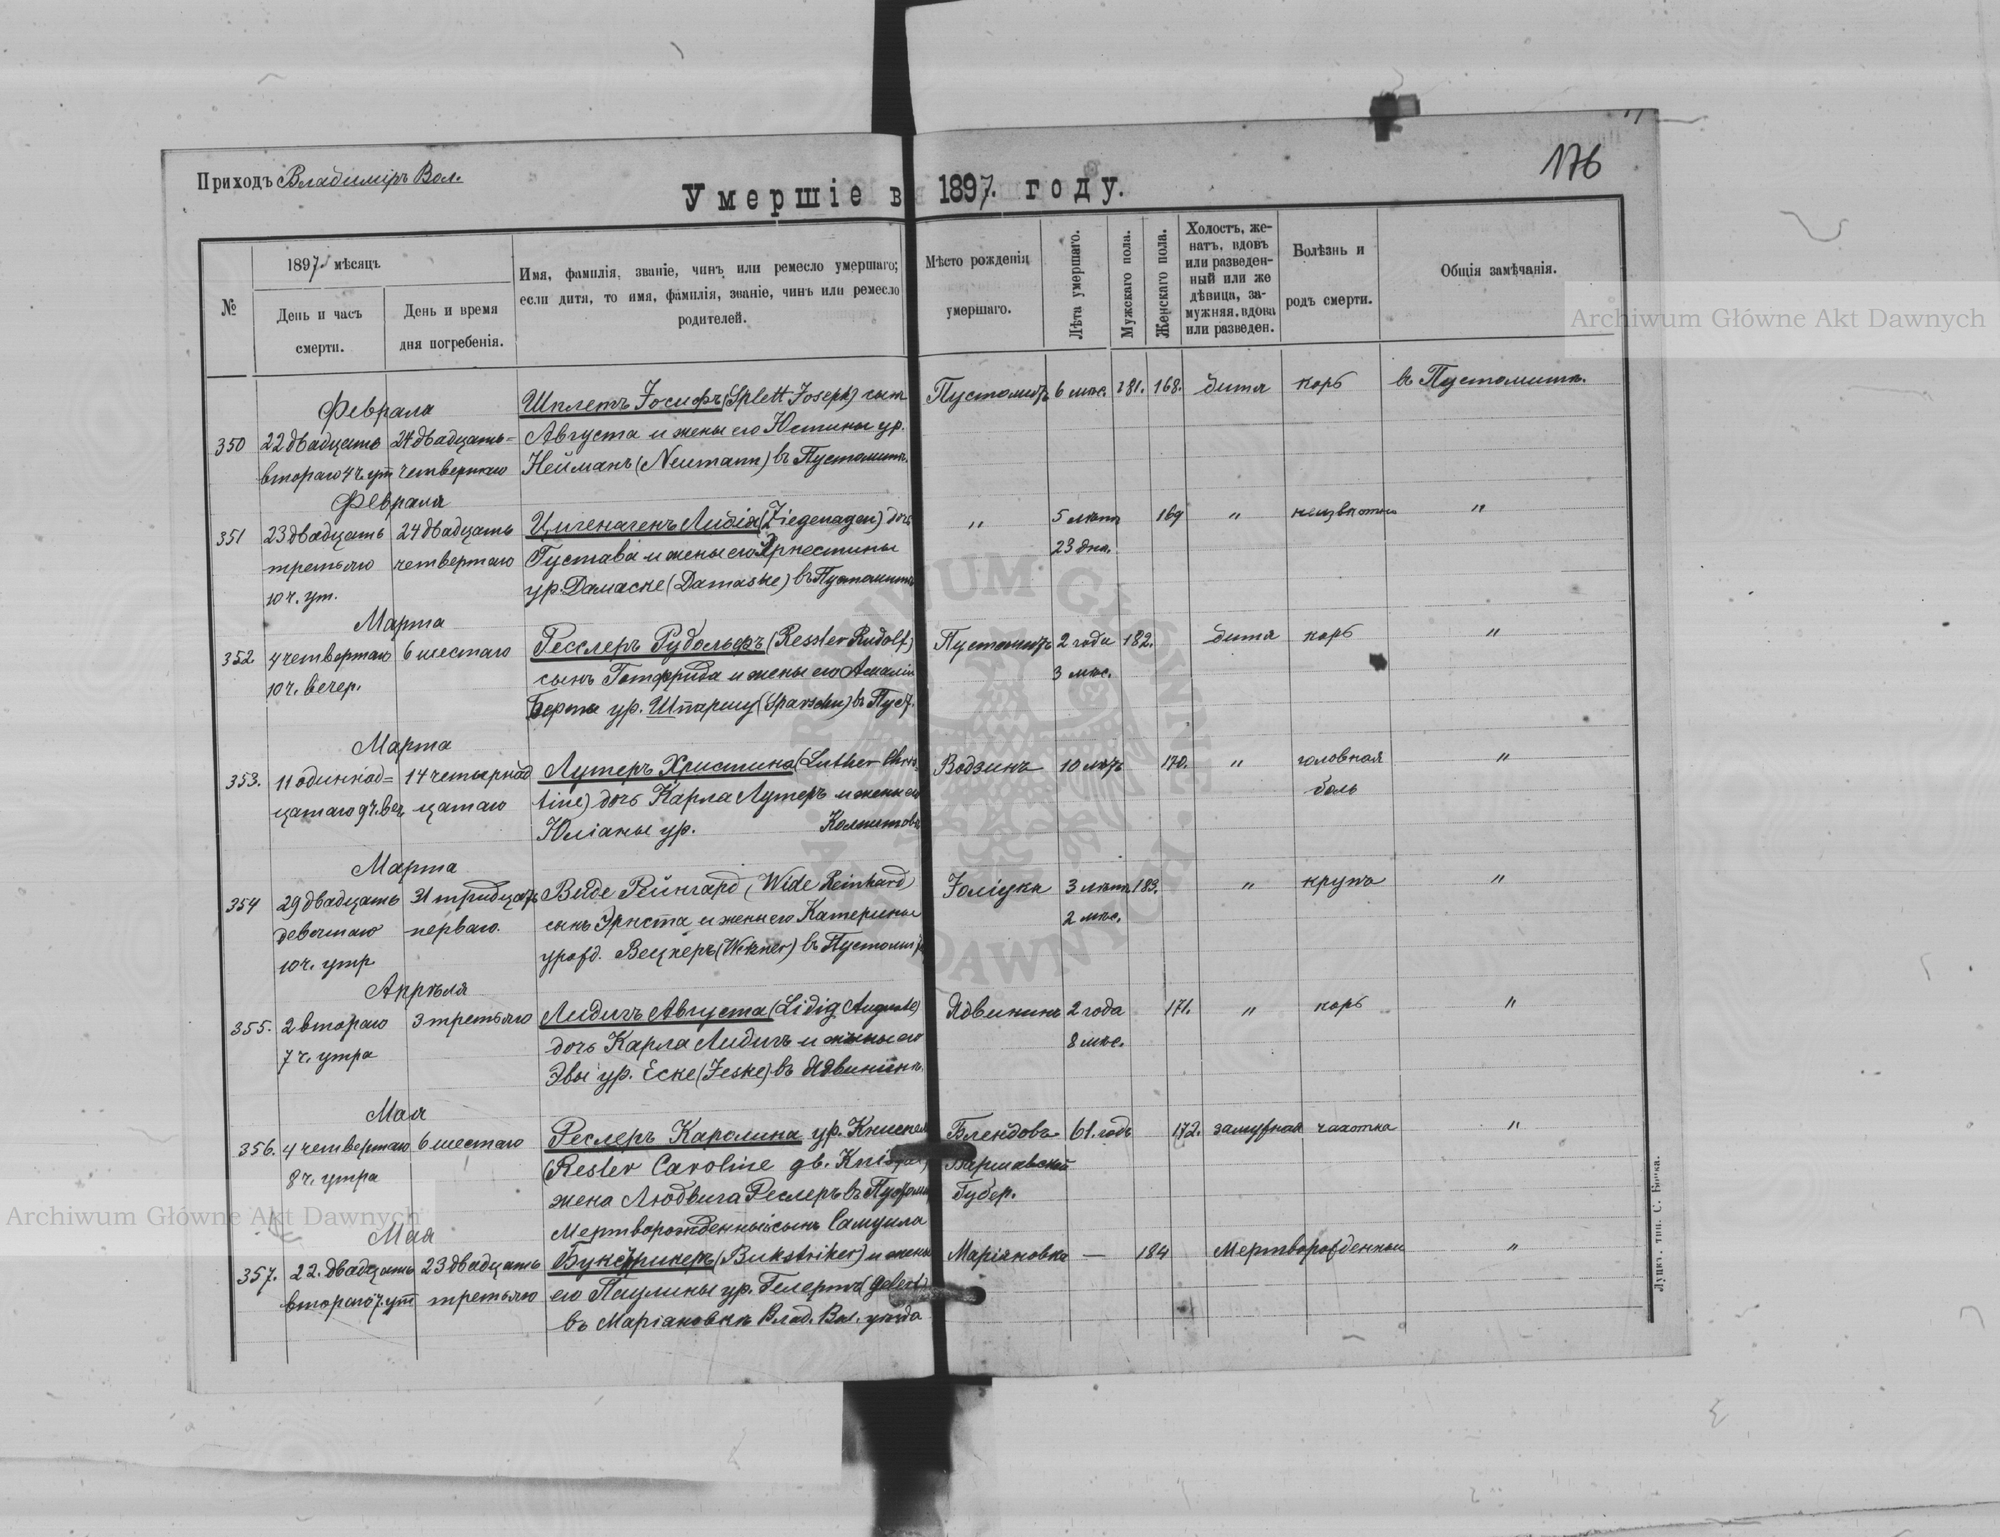 176
Приходъ Владиміръ Вол.
Умершіе въ 1897. году.
№
1897. мѣсяцъ
День и часъ смерти.
День и время дня погребенія.
Имя, фамилія, званіе, чинъ или ремесло умершаго;
если дитя, то имя, фамилія, званіе, чинъ или ремесло
родителей.
Мѣсто рожденія
умершаго.
Лѣта умершаго.
Мужскаго пола.
Женскаго пола.
Холостъ, же-
натъ, вдовъ
или разведен-
ный или же
дѣвица, за-
мужняя, вдова
или разведен.
Болѣзнь и
родъ смерти.
Общія замѣчанія.
Archiwum Główne Akt Dawnych
Февраля
Шплетъ Іосифъ (Splett Joseph) сынъ
Пустомытъ 6 мѣс. 181. 168. дитя корь въ Пустомытѣ.
350 22 двадцать 24 двадцать= Августа и жены его Юстины ур.
втораго 4 ч. ут. четвертаго Нейманъ (Neumann) въ Пустомыт.
Февраля
351 23 двадцать 24 двадцать Цигенагенъ Лидія (Ziegenagen) дочь
" 5 лѣтъ 169 " неизвѣстно "
третьяго четвертаго Густава и жены его Эрнестины
23 дня.
10 ч. ут. ур. Дамаске (Damaske) въ Пустомытѣ
Марта
352 4 четвертаго 6 шестаго Ресслеръ Рудольфъ (Ressler Rudolf)
Пустомытъ 2 года 182. дитя корь "
10 ч. вечер. сынъ Готфрида и жены его Амаліи
3 мѣс.
Берты ур. Шпаршу (Sparschu) въ Пуст.
Марта
353. 11 одиннад= 14 четырнад Лутеръ Христина (Luther Chris
Водзинъ 10 лѣтъ 170. " головная "
цатаго 9 ч. веч. цатаго tine) дочь Карла Лутеръ и жены его
боль
Юліаны ур.
Марта
354 29 двадцать 31 тридцать Виде Рейнгард (Wide Reinhard)
3 лѣтъ 183. " крупъ "
девятаго перваго. сынъ Эрнста и жены его Катерины
2 мѣс.
10 ч. утр. урожд. Вецнеръ (Wezner) въ Пустомыт
Апрѣля
355. 2 втораго 3 третьяго Лидигъ Августа (Lidig Auguste)
Ядвининъ 2 года 171. " корь "
7 ч. утра дочь Карла Лидигъ и жены его
8 мѣс.
Эвы ур. Еске (Jeske) въ Ядвининѣ.
Мая
356. 4 четвертаго 6 шестаго Реслеръ Каролина ур.
Блендовъ 61. годъ 172. замужная чахотка "
8 ч. утра (Resler Caroline gb.
Варшавской
жена Людвига Реслеръ въ Пустомыт
Губер.
Мая
Мертворожденный сынъ Самуила
357. 22. двадцать 23 двадцать Букстрикеръ (Bukstriker) и жены
Маріановка — 184 Мертворожденный "
втораго 7. ут. третьяго его Паулины ур. Гелертъ (Gelert)
въ Маріановкѣ Влад. Вол. уѣзда
Archiwum Główne Akt Dawnych
Луцкъ. тип. С. Бочка.